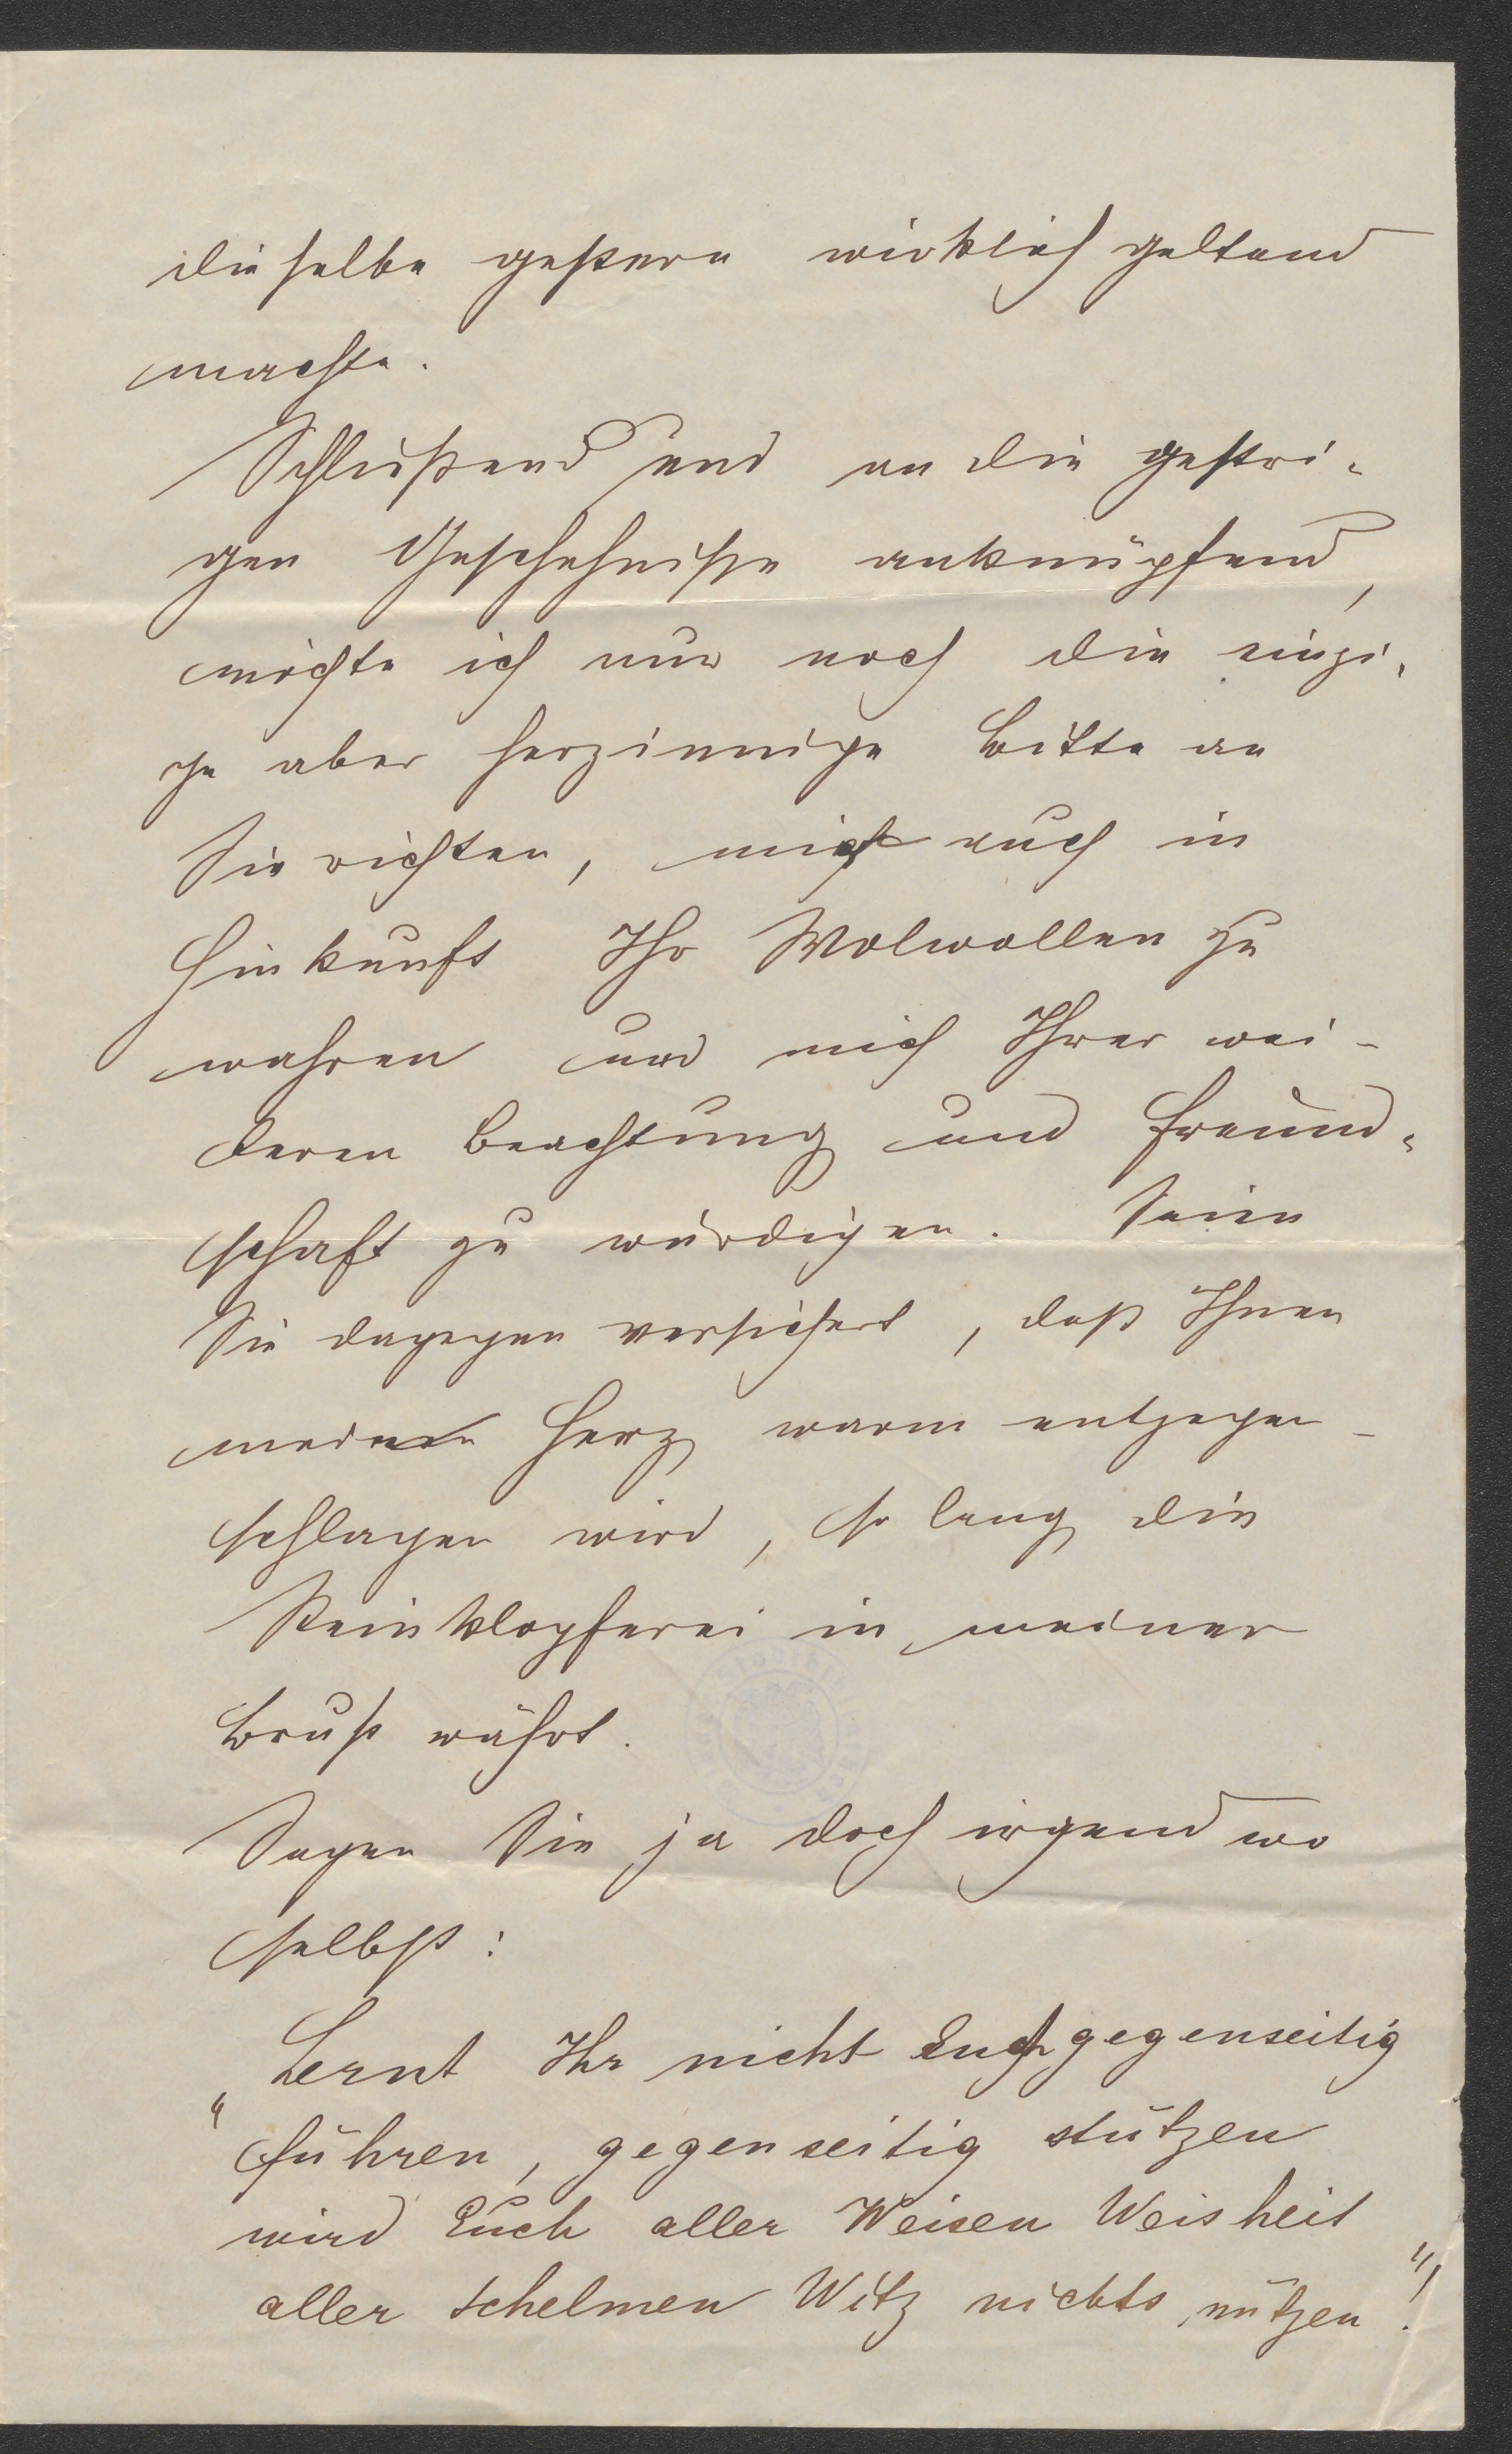 dieselbe gestern wirklich geltend
machte.
Schließend und an die gestri-
gen Geschehniße anknüpfend,
möchte ich nur noch die einzi-
ge aber herzinnige Bitte an
Sie richten, mir auch in
Hinkunft Ihr Wolwollen zu
wahren und mich Ihrer wei-
teren Beachtung und Freund-
schaft zu würdigen. Seien
Sie dagegen versichert, daß Ihnen
mein Herz warm entgegen-
schlagen wird, so lang die
Steinklopferei in meiner
Brust währt.
Sagen Sie ja doch irgend wo
selbst:
"Lernt Ihr nicht Euch gegenseitig
führen, gegenseitig stützen
wird Euch aller Weisen Weisheit
aller Schelmen Witz nichts nützen!"